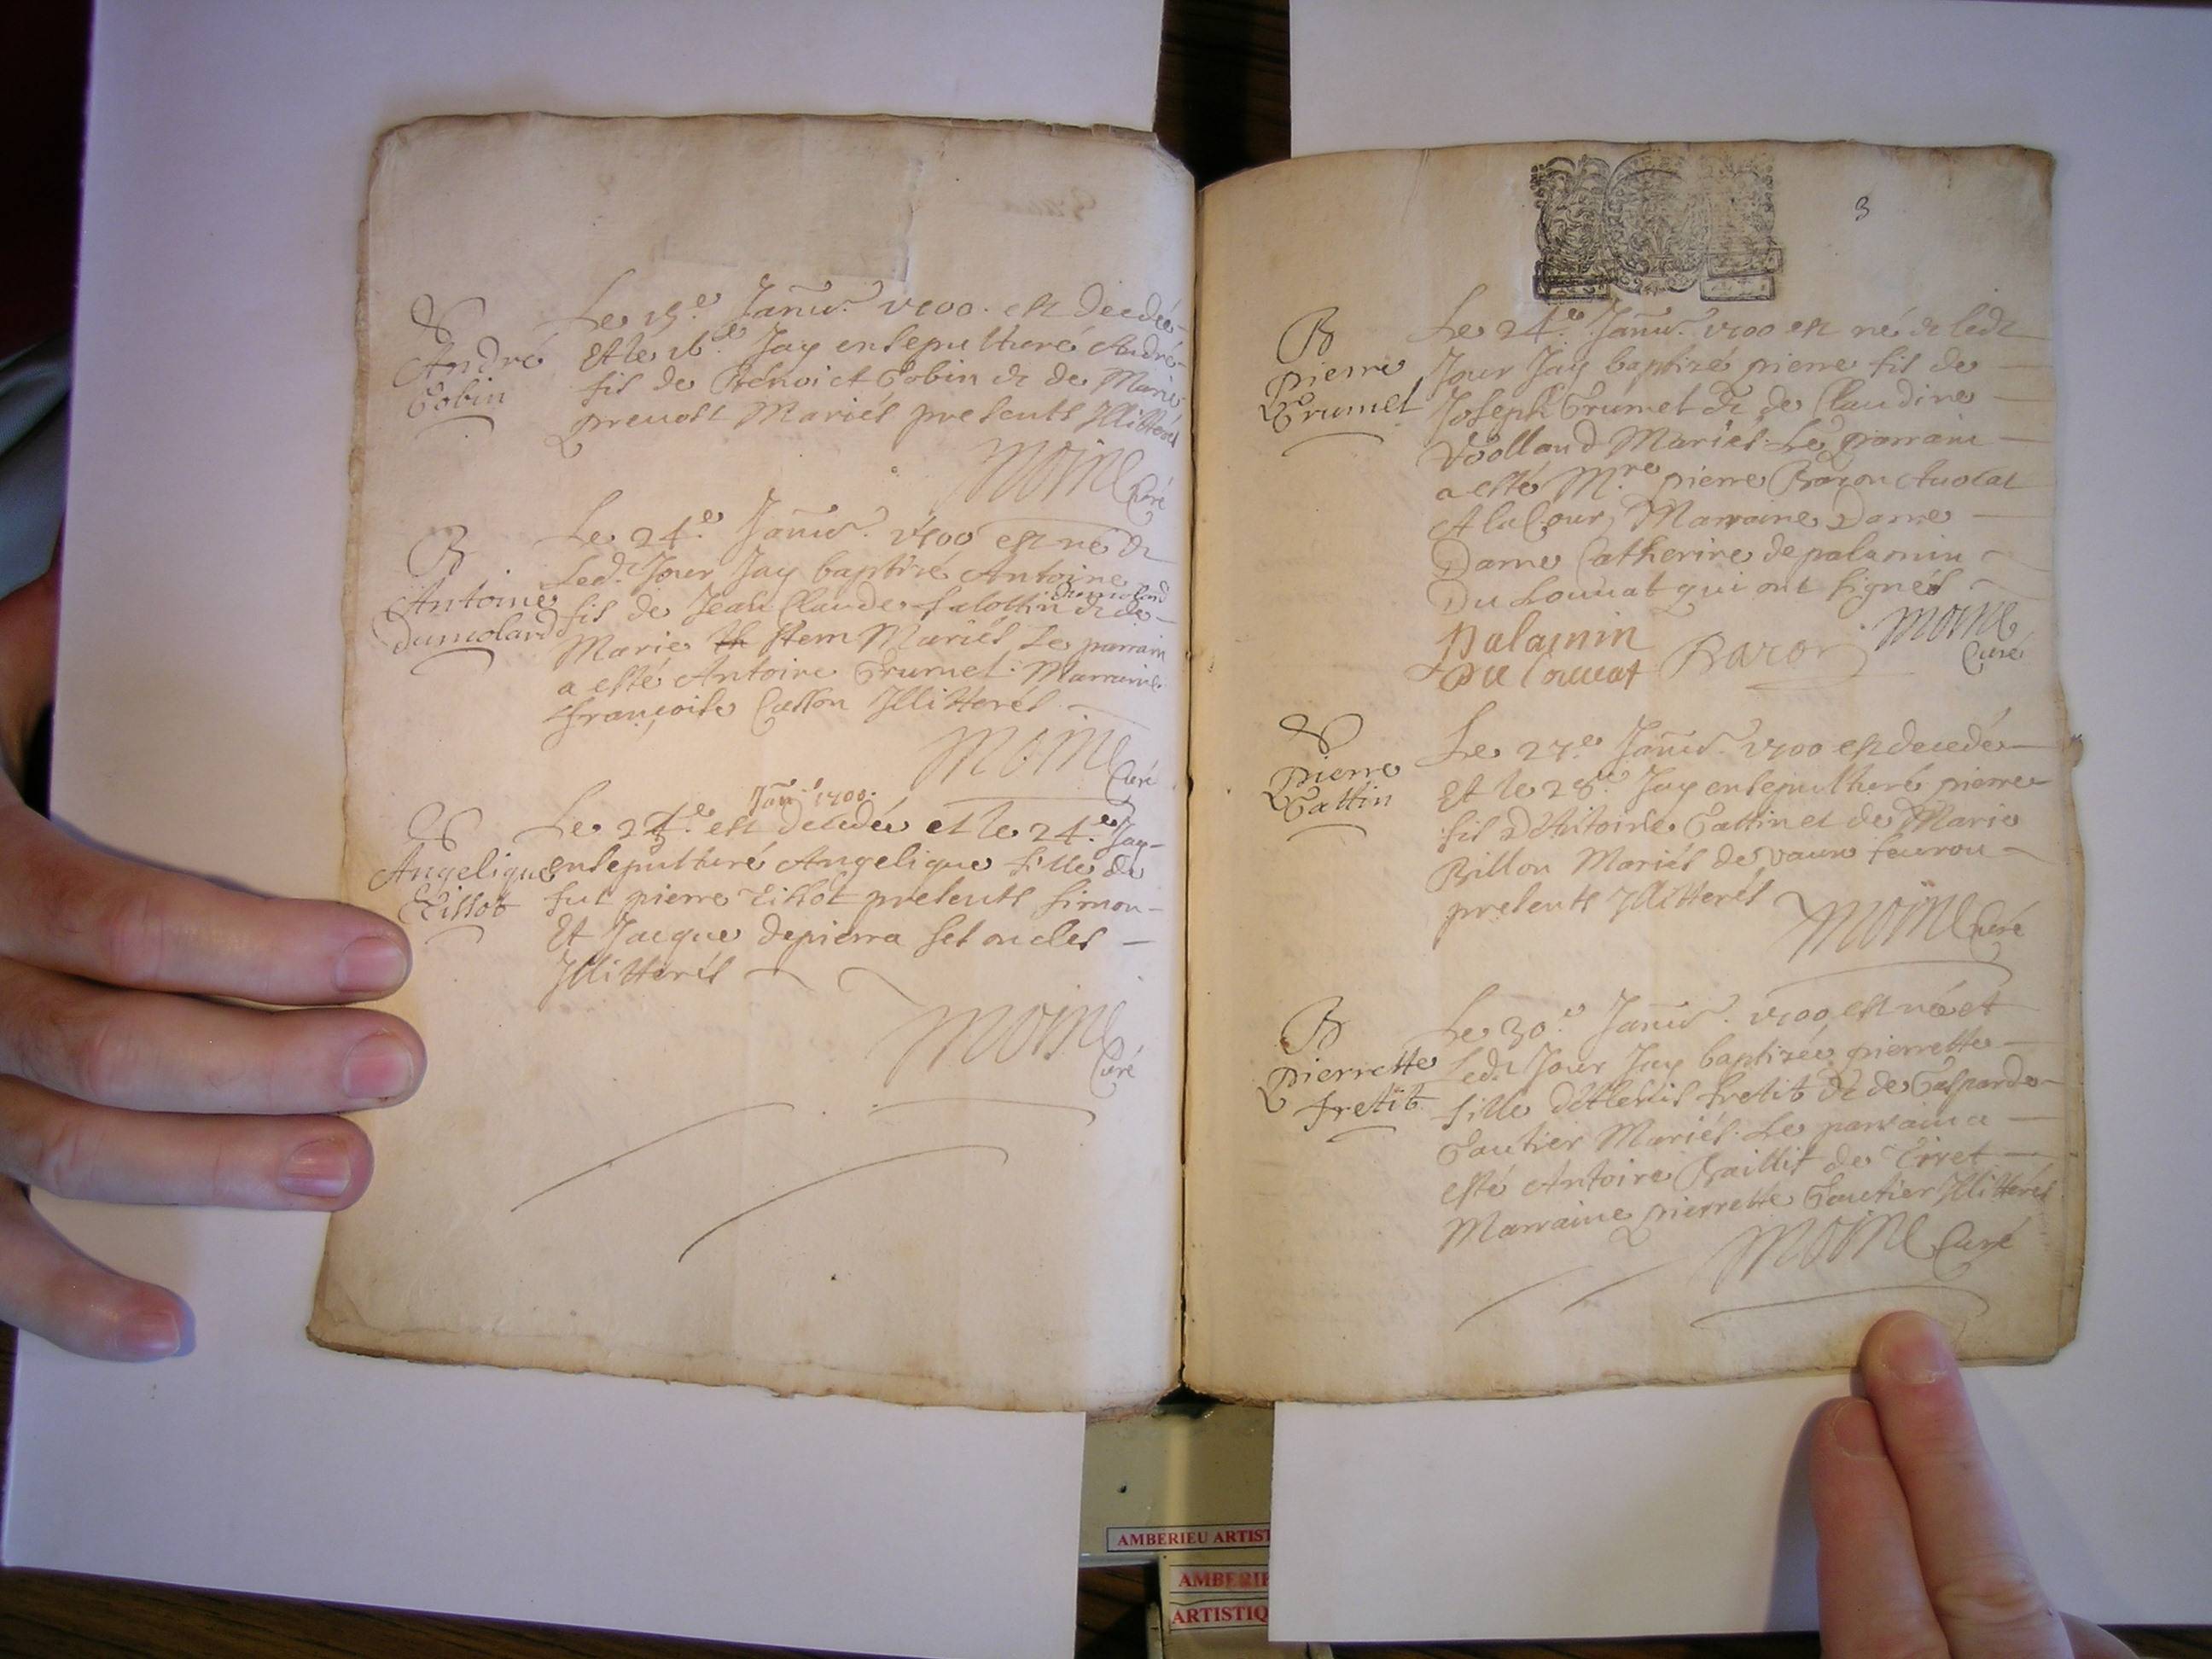 S
André
Gobin
Le 15.e Janvr. 1700. est decedé
Et le 16.e Jay ensepulturé André
fils de Bénoict Gobin & de Marie
prevost Mariés presents Illiterés
Moine Curé
B
Antoine
Dumolard
Le 24.e Janvr. 1700 est né &
Led. Jour Jay baptizé Antoine
Dumolard
fils de Jean Claude falottin & de
Marie Stem Mariés Le parrain
a esté Antoine Grumet. Marraine
françoise Casson Illiterés
Moine Curé
S
Angelique
Tissot
Janr. 1700.
Le 23.e est decedée et le 24.e Jay
ensepulturé Angelique fille de
fut pierre Tissot presents simon
Et Jacque depierra ses oncles
Illiterés
Moine
Curé
3
B
Pierre
Grumet
Le 24.e Janvr. 1700 est né & ledt
Jour Jay baptizé pierre fils de
Joseph Grumet & de Claudine
Voolland Mariés. Le parrain
a esté M.re pierre Baron Avocat
A la Cour, Marraine Dame
Dame Catherine de palamin
Du Louvat qui ont signés
Palamin
Du Louvat
Baron
Moine
Curé
S
Pierre
Gattin
Le 27.e Janvr. 1700 est decedé
Et le 28.e Jay ensepulturé pierre
fils D'Antoine Gattin et de Marie
Billon Mariés de vaux fevrou
presents Illiterés
Moine Curé
B
Pierrette
fretit
Le 30.e Janvr. 1700 est née et
Led. Jour Jay baptizée pierrette
fille d'Alexis fretit & de Gasparde
Gautier Mariés. Le parrain a
esté Antoine Baillit de Tiret
Marraine pierrette Gautier Illiterés
Moine Curé
AMBERIEU ARTIST
AMBERIE
ARTISTIQ